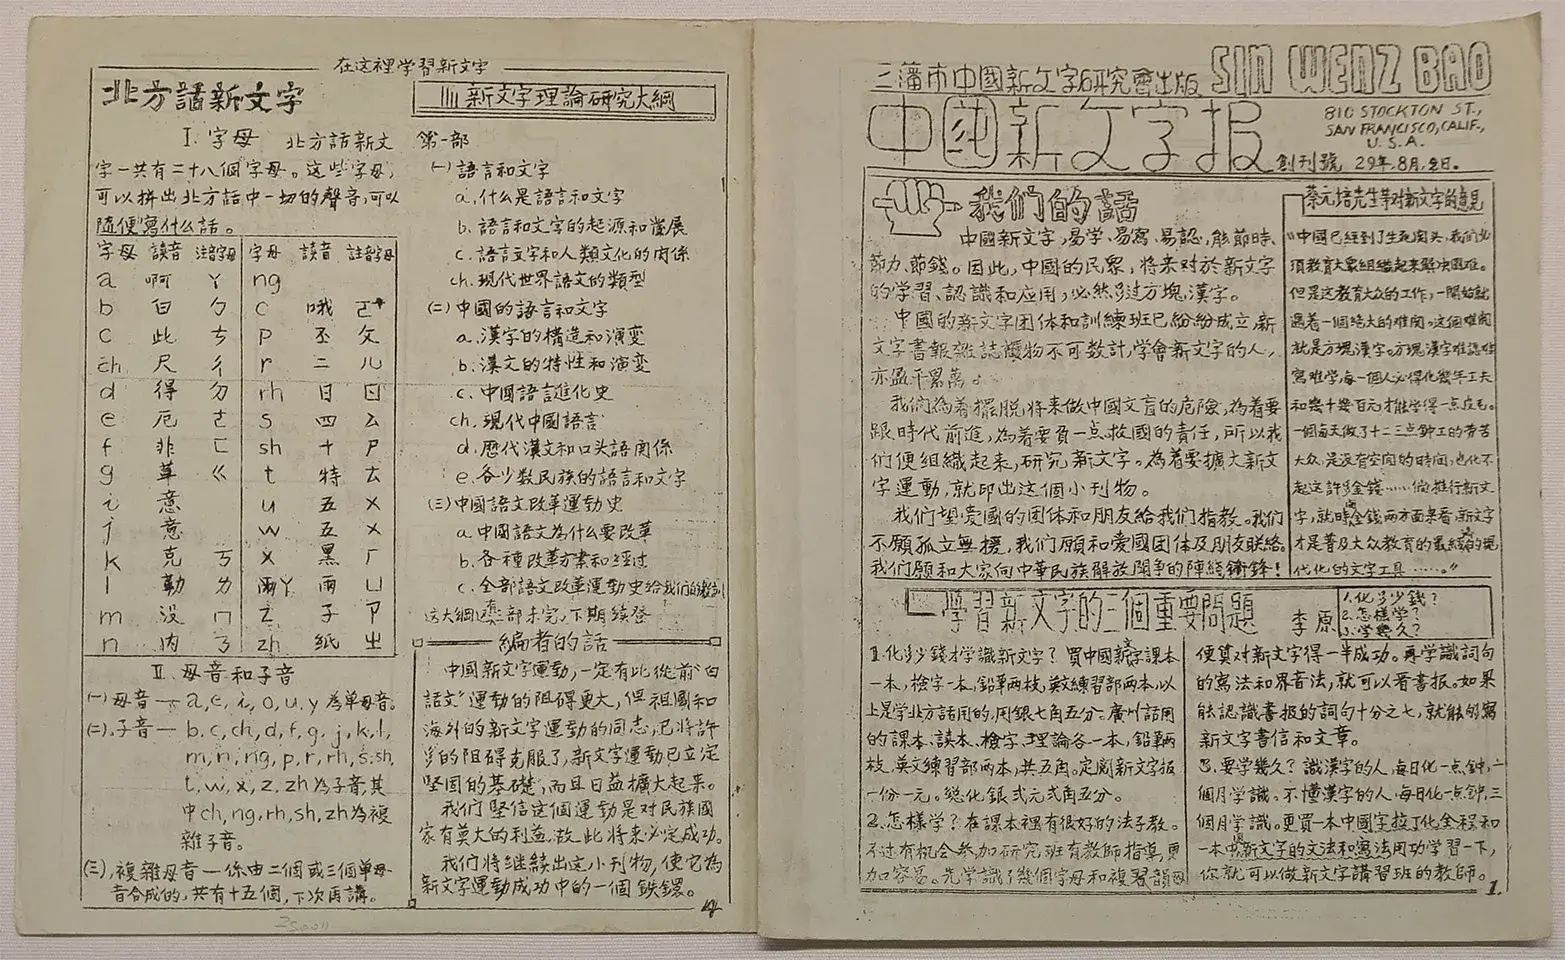 在这裡学習新文字
北方話新文字
I. 字母 北方話新文
字一共有二十八個字母。这些字母,
可以拼出北方話中一切的聲音,可以
隨便寫什么話。
字母 讀音 注音字母 字母 讀音 註音字母
a 啊 ㄚ ng
b 白 ㄅ o 哦 ㄛ
c 此 ㄘ p 丕 ㄆ
ch 尺 ㄔ r 二 ㄦ
d 得 ㄉ rh 日 ㄖ
e 厄 ㄜ s 四 ㄙ
f 非 ㄈ sh 十 ㄕ
g 革 ㄍ t 特 ㄊ
i 意 u 五 ㄨ
j 意 w 五 ㄨ
k 克 ㄎ x 黑 ㄏ
l 勒 ㄌ 雨 ㄩ
m 没 ㄇ z 子 ㄗ
n 内 ㄋ zh 纸 ㄓ
II. 母音和子音
(一)母音— a, e, i, o, u, y 為單母音。
(二)子音— b, c, ch, d, f, g, j, k, l,
m, n, ng, p, r, rh, s, sh,
t, w, x, z, zh為子音,其
中ch, ng, rh, sh, zh為複
雜子音。
(三)複雜母音—係由二個或三個單母
音合成的,共有十五個,下次再講。
新文字理論研究大綱
第一部
(一)語言和文字
a. 什么是語言和文字
b. 語言和文字的起源和發展
c. 語言文字和人類文化的関係
ch. 現代世界語文的類型
(二)中國的語言和文字
a. 漢字的構造和演変
b. 漢文的特性和演変
c. 中國語言進化史
ch. 現代中國語言
d. 歷代漢文和口头語関係
e. 各少数民族的語言和文字
(三)中國語文改革運動史
a. 中國語文為什么要改革
b. 各種改革方案和经过
c. 全部語文改革運動史给我們的教訓
这大綱第二部未完,下期續登
編者的話
中國新文字運動,一定有比從前"白
話文"運動的阻碍更大,但祖國和
海外的新文字運動的同志,已將許
多的阻碍克服了,新文字運動已立定
堅固的基礎,而且日益擴大起來。
我們堅信这個運動是对民族國
家有莫大的利益,故此將来必定成功。
我們將继續出这小刊物,使它為
新文字運動成功中的一個鉄鐶。
三藩市中國新文字研究會出版 SIN WENZ BAO
中國新文字报
810 STOCKTON ST.,
SAN FRANCISCO, CALIF.,
U.S.A.
創刊號 29年,8月,2日。
我們的話
中國新文字,易学、易寫、易認,能節時、
節力、節錢。因此,中國的民眾,將来对於新文字
的学習、認識和应用,必然多过方塊漢字。
中國的新文字团体和訓練班已紛紛成立,新
文字書報雜誌讀物不可数計,学會新文字的人,
亦盈千累萬。
我們為着擺脱將来做中國文盲的危險,為着要
跟時代前進,為着要負一点救國的責任,所以我
們便組織起来,研究新文字。為着要擴大新文
字運動,就印出這個小刊物。
我們望爱國的团体和朋友給我們指教。我們
不願孤立無援,我們願和爱國团体及朋友联络。
我們願和大家向中華民族解放鬥争的陣綫衝鋒!
蔡元培先生等对新文字的意見
"中國已經到了生死関头,我們必
須教育大眾組織起来解决困难。
但是这教育大众的工作,一開始就
遇着一個绝大的难関。这個难関
就是方塊漢字。方塊漢字难認难
寫难学,每一個人必得化幾年工夫
和幾十幾百元才能学得一点皮毛。
一個每天做了十二三点鈡工的劳苦
大众,是没有空閒的時間,也化不
起这許多金錢……倘推行新文
字,就時間金錢两方面来看,新文字
才是普及大众教育的最經济的現
代化的文字工具……。"
学習新文字的三個重要問題 李原
1. 化多少錢?
2. 怎樣学?
3. 学幾久?
1. 化多少錢才学識新文字?買中國新文字課本
一本,檢字一本,鉛筆兩枝,英文練習部兩本,以
上是学北方話用的,用銀七角五分。廣州話用
的課本、讀本、檢字、理論各一本,鉛筆兩
枝,英文練習部兩本,共五角。定閱新文字报
一份一元。總化銀弍元弍角五分。
2. 怎樣学?在課本裡有很好的法子教。
不过有机会参加研究班有教師指導,更
加容易。先学識了幾個字母和複習韻母
便算对新文字得一半成功。再学識詞句
的寫法和界音法,就可以看書报。如果
能認識書报的詞句十分之七,就能够寫
新文字書信和文章。
3. 要学幾久?識漢字的人,每日化一点鈡,一
個月学識。不懂漢字的人,每日化一点鈡,三
個月学識。更買一本中國字拉丁化全程和
一本中國新文字的文法和寫法用功学習一下,
你就可以做新文字講習班的教師。
1.